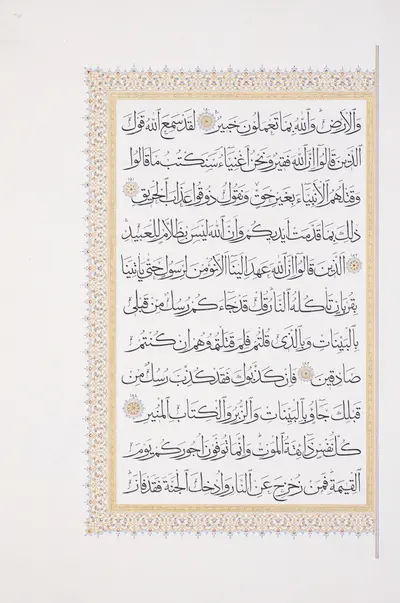 والأرض والله بما تعملون خبير لقد سمع الله قول
الذين قالوا إن الله فقير ونحن أغنياء سنكتب ما قالوا
وقتلهم الأنبياء بغير حق ونقول ذوقوا عذاب الحريق
ذلك بما قدمت أيديكم وأن الله ليس بظلام للعبيد
الذين قالوا إن الله عهد إلينا ألا نؤمن لرسول حتى يأتينا
بقربان تأكله النار قل قد جاءكم رسل من قبلي
بالبينات وبالذي قلتم فلم قتلتموهم إن كنتم
صادقين فإن كذبوك فقد كذب رسل من
قبلك جاؤ بالبينات والزبر والكتاب المنير
كل نفس ذائقة الموت وإنما توفون أجوركم يوم
القيمة فمن زحزح عن النار وأدخل الجنة فقد فاز